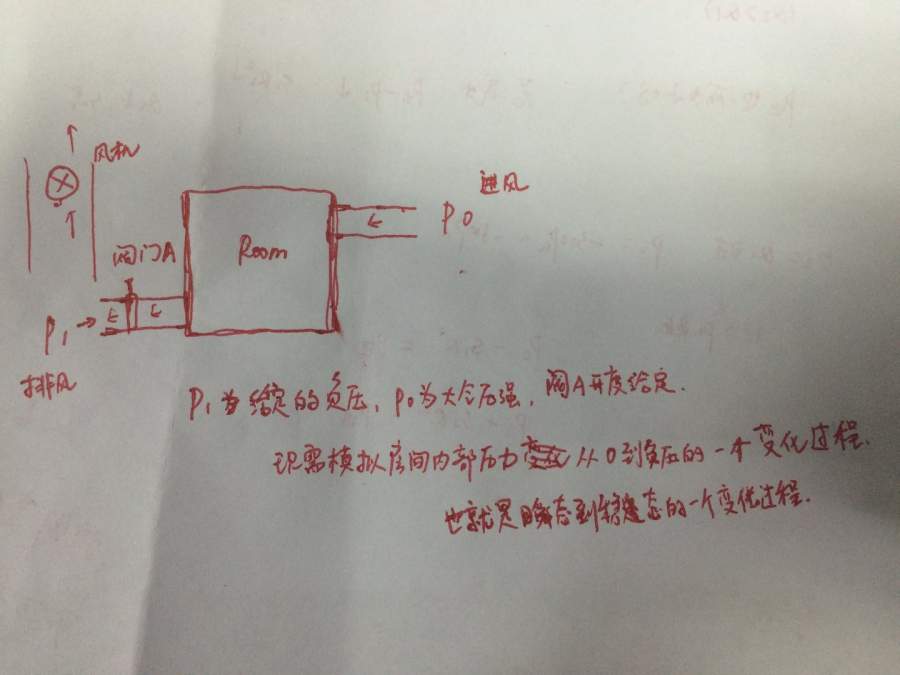 进风
风机
P0
Room
阀门A
P1
排风
P1为给定的负压，P0为大气压强，阀A开度给定.
现需模拟房间内部压力从0到负压的一个变化过程.
也就是瞬态到稳态的一个变化过程.